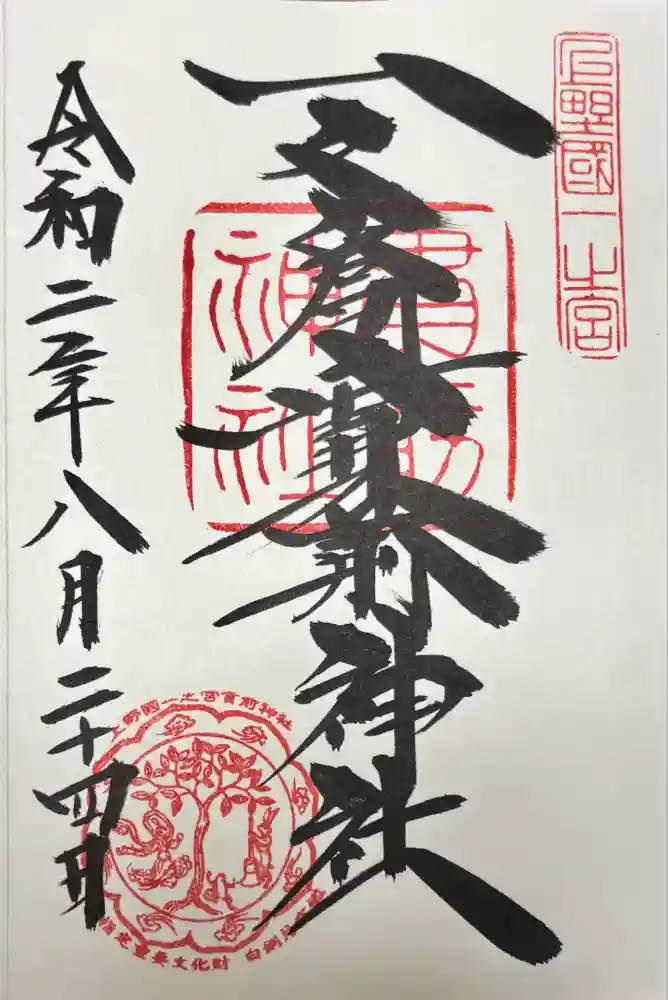 上野國一之宮
一之宮貫前神社
貫前神社
令和二年八月二十四日
上野國一之宮貫前神社
指定重要文化財 白銅月